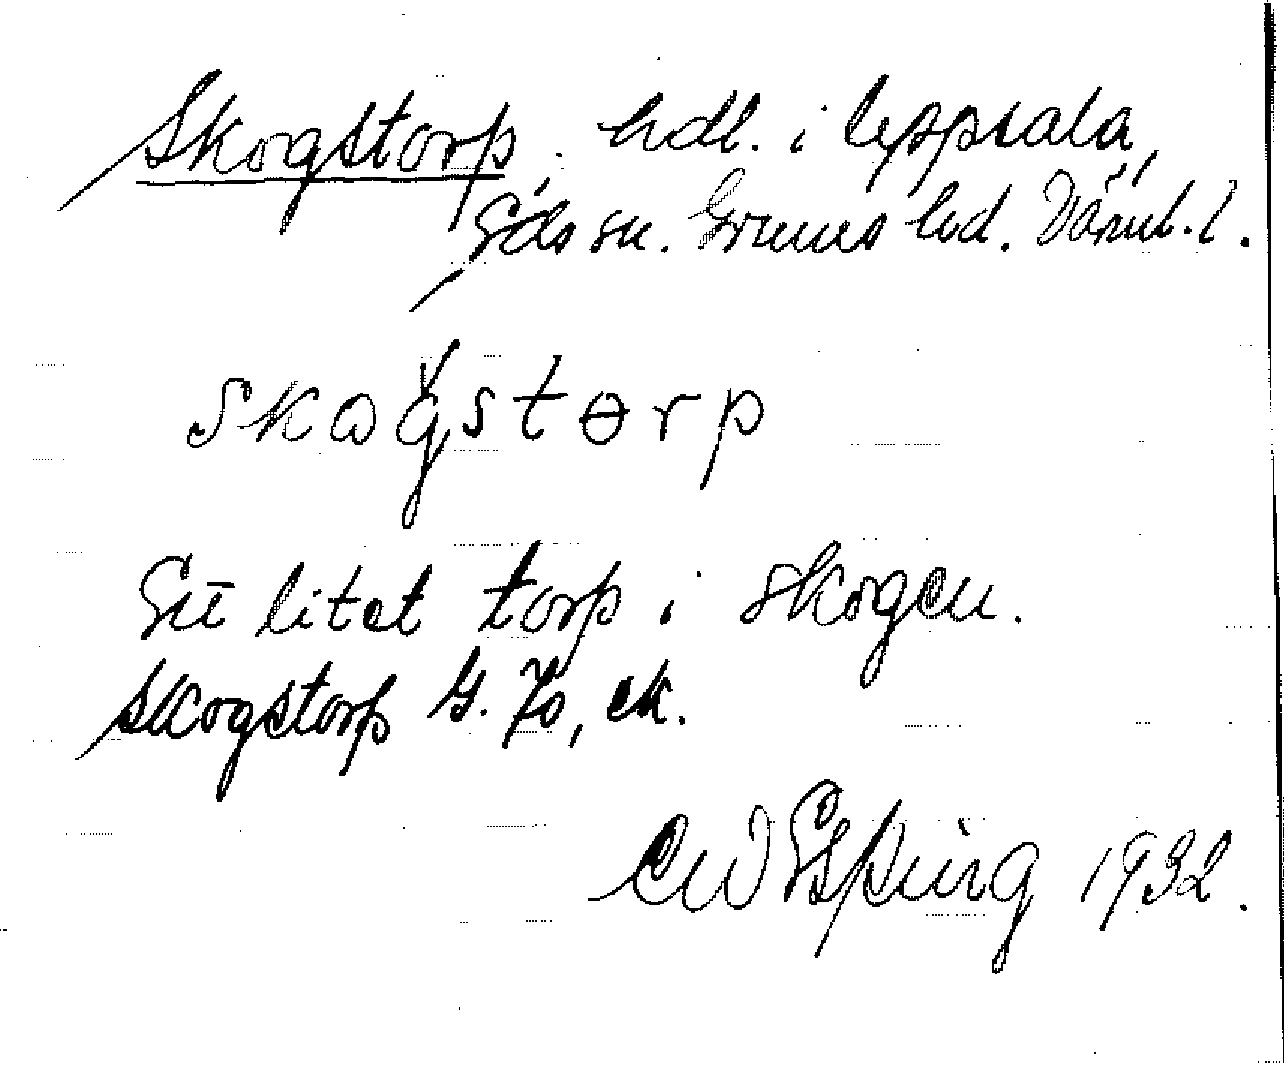 Skogstorp, hdl. i Uppsala,
Eds sn. Grums hd. Värml. l.
skogstorp
Ett litet torp i skogen.
Skogstorp G. K, ek.
CW Esping 1932.